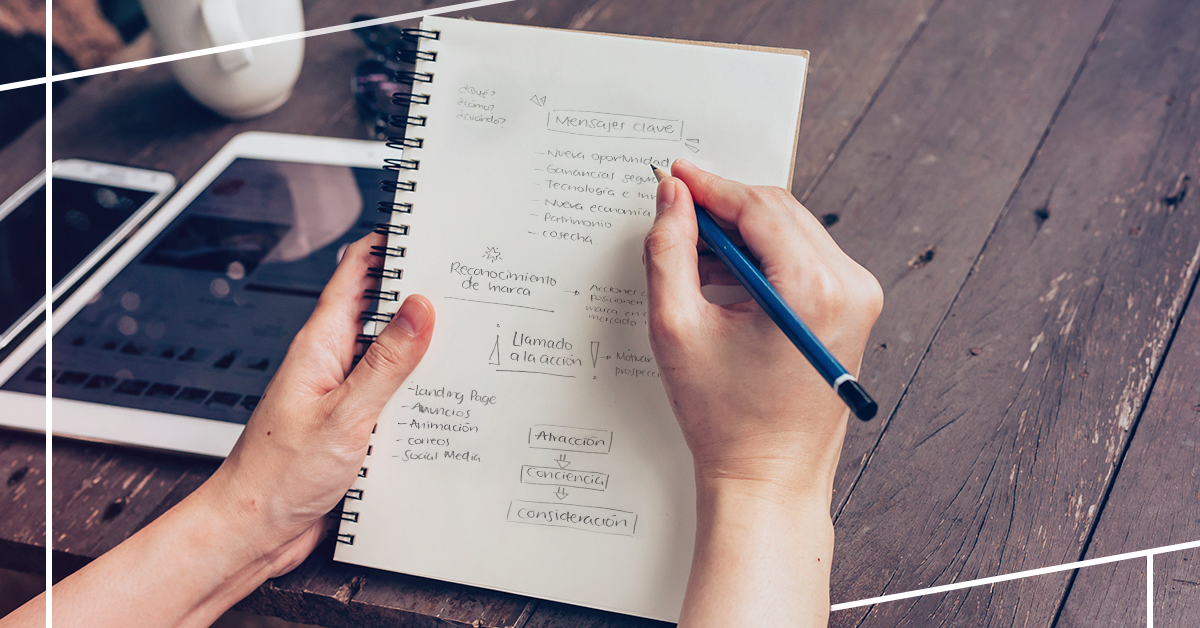 ¿Qué?
¿Cómo?
¿cuándo?
Mensajes clave
- Nueva oportunidad
- Ganancias
- Tecnología e
- Nueva economía
- Patrimonio
- cosecha
Reconocimiento
de marca
Acciones
marca en
mercado
¡Llamado
a la acción!
Motivar
- Landing Page
- Anuncios
- Animación
- correos
- Social Media
Atracción
conciencia
consideración